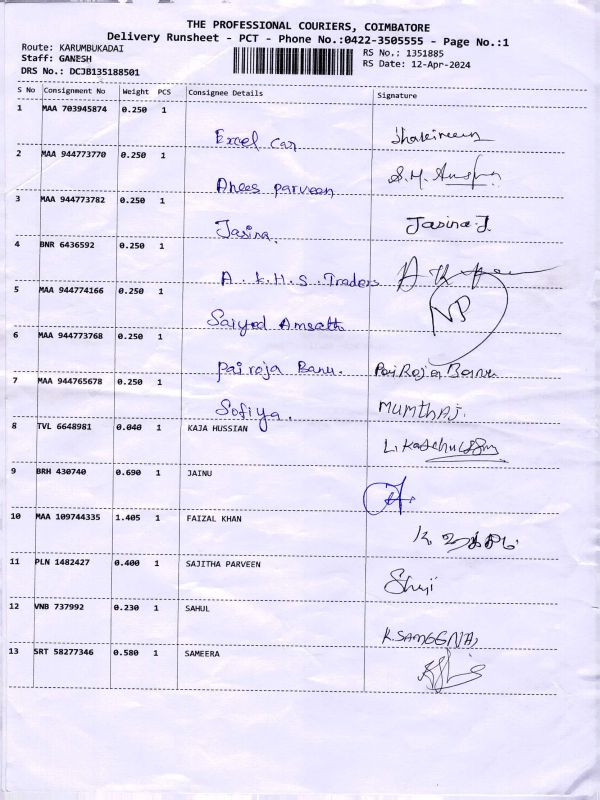 THE PROFESSIONAL COURIERS, COIMBATORE
Delivery Runsheet - PCT - Phone No.:0422-3505555 - Page No.:1
Route: KARUMBUKADAI
RS No.: 1351885
Staff: GANESH
RS Date: 12-Apr-2024
DRS No.: DCJB135188501
S No Consignment No Weight PCS Consignee Details Signature
1 MAA 703945874 0.250 1
Excel Car
2 MAA 944773770 0.250 1
Anees parveen S.M.
3 MAA 944773782 0.250 1
Jasina. Jasina.J.
4 BNR 6436592 0.250 1
A.K.H.S.Traders
5 MAA 944774166 0.250 1
Saiyed Amsath NP
6 MAA 944773768 0.250 1
Pairoja Banu. PaiRoja Banu
7 MAA 944765678 0.250 1
Sofiya. MUMTHAJ.
8 TVL 6648981 0.040 1 KAJA HUSSIAN
9 BRH 430740 0.690 1 JAINU
10 MAA 109744335 1.405 1 FAIZAL KHAN
11 PLN 1482427 0.400 1 SAJITHA PARVEEN
12 VNB 737992 0.230 1 SAHUL
13 SRT 58277346 0.580 1 SAMEERA